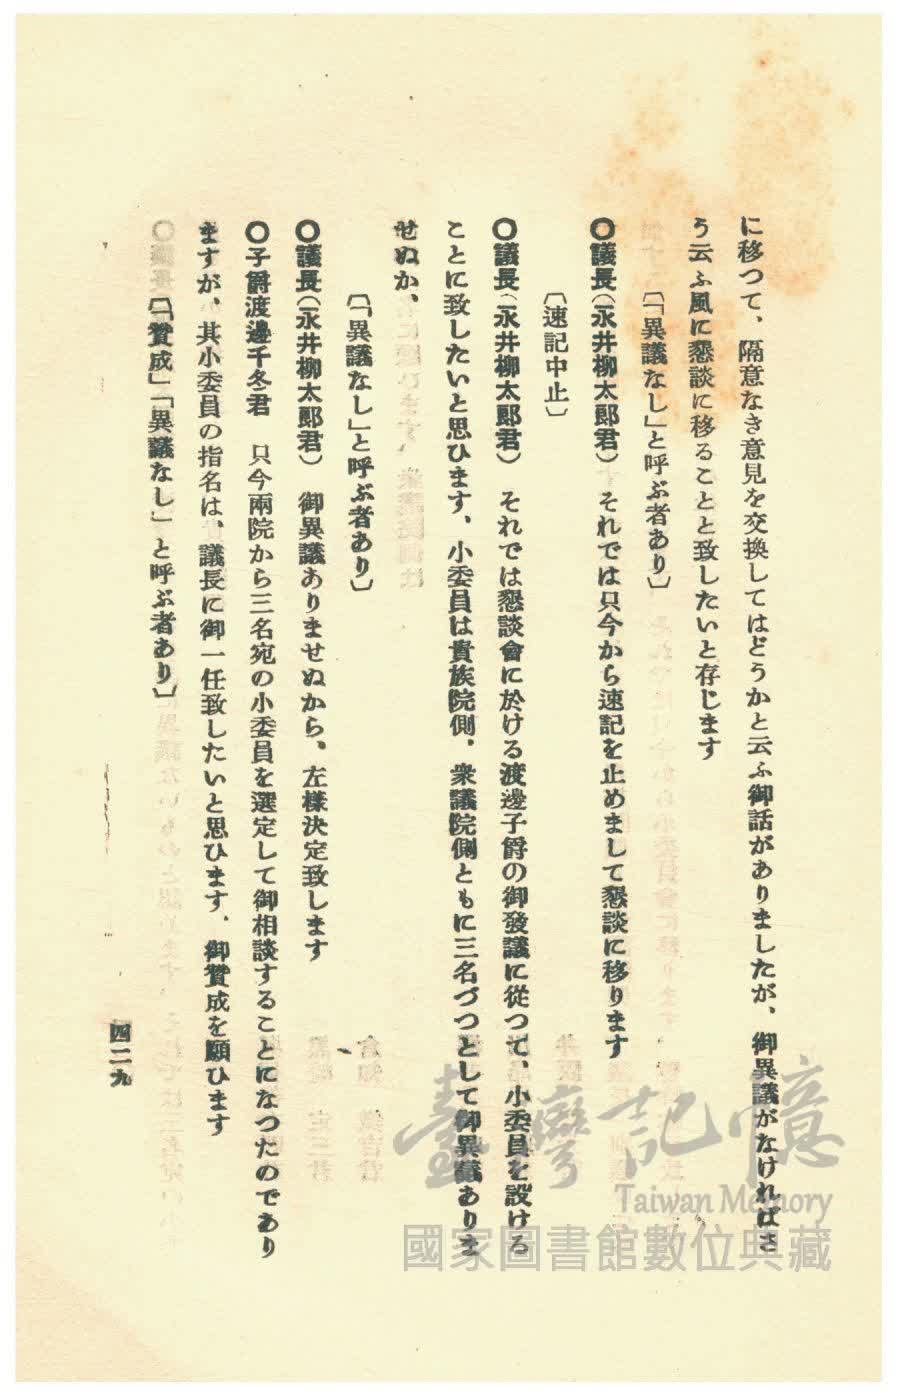 に移つて、隔意なき意見を交換してはどうかと云ふ御話がありましたが、御異議がなければさ
う云ふ風に懇談に移ることと致したいと存じます
〔「異議なし」と呼ぶ者あり〕
〇議長（永井柳太郎君）　それでは只今から速記を止めまして懇談に移ります
〔速記中止〕
〇議長（永井柳太郎君）　それでは懇談會に於ける渡邊子爵の御發議に從つて、小委員を設ける
ことに致したいと思ひます、小委員は貴族院側、衆議院側ともに三名づつとして御異議ありま
せぬか、
〔「異議なし」と呼ぶ者あり〕
〇議長（永井柳太郎君）　御異議ありませぬから、左樣決定致します
〇子爵渡邊千冬君　只今兩院から三名宛の小委員を選定して御相談することになつたのであり
ますが、其小委員の指名は、議長に御一任致したいと思ひます、御贊成を願ひます
〔「贊成」「異議なし」と呼ぶ者あり〕
四二九
臺灣記憶
Taiwan Memory
國家圖書館數位典藏